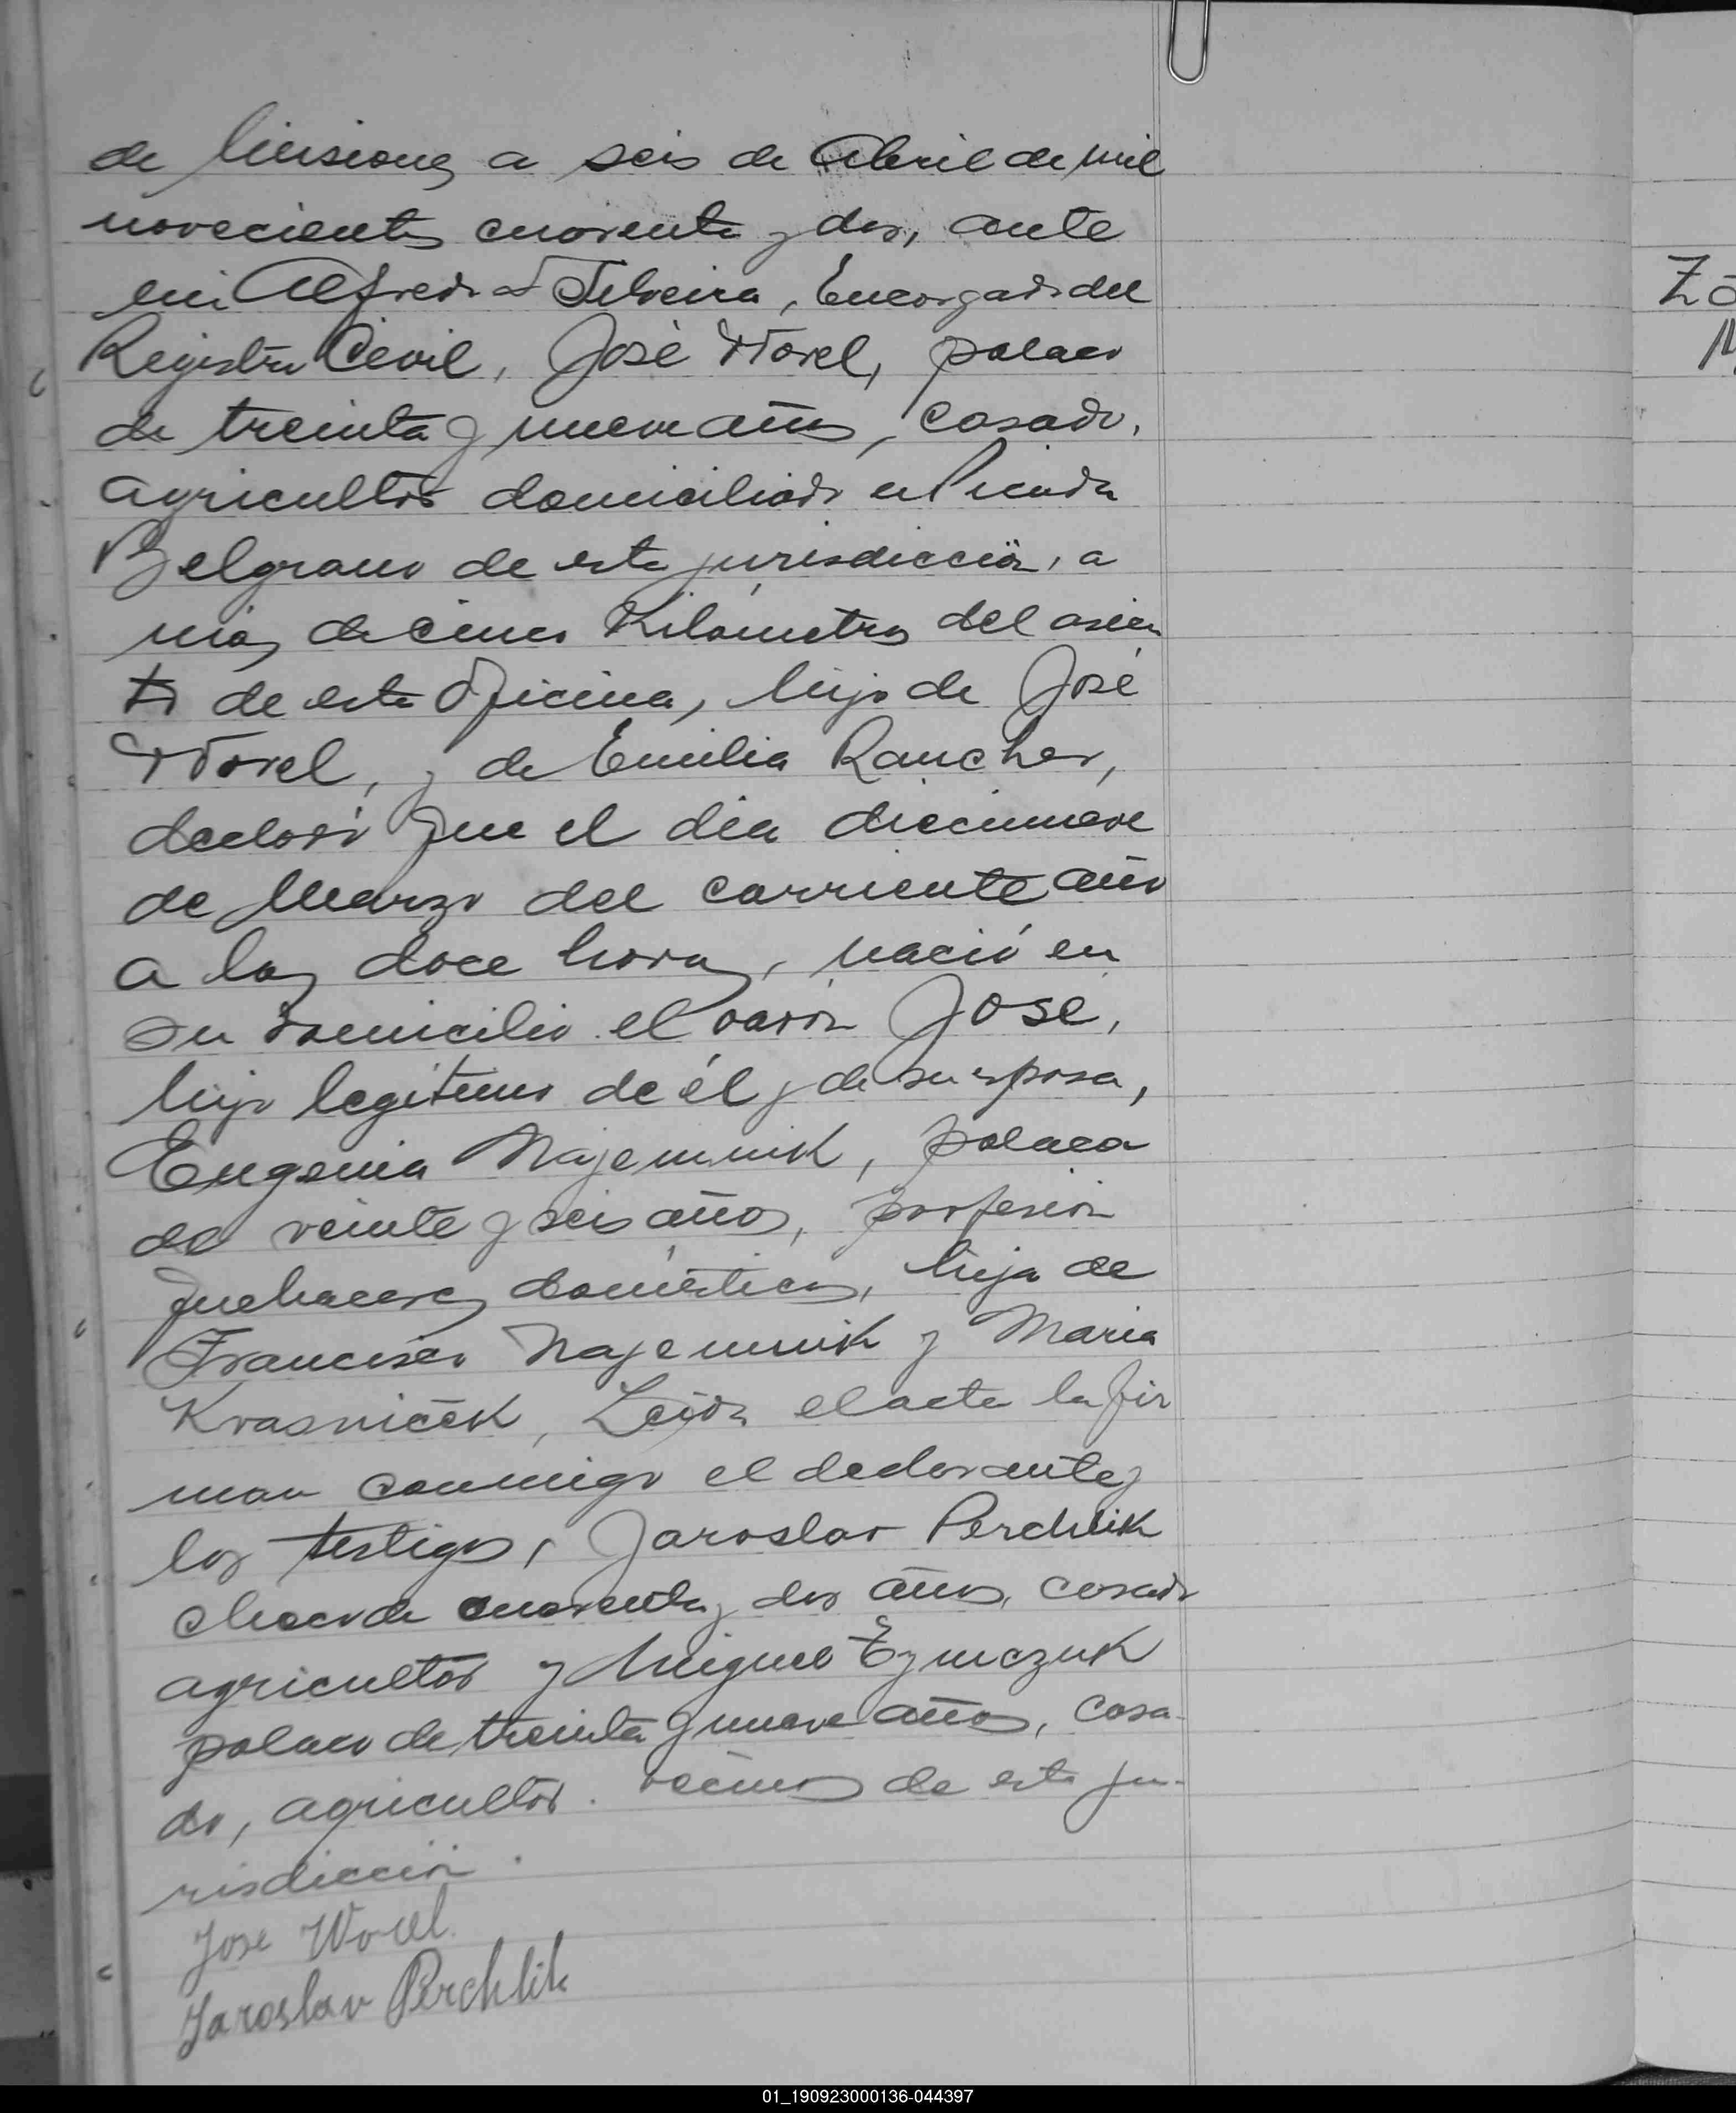 de Misiones a seis de Abril de mil
novecientos cuarenta y dos, ante
mi Alfredo Silveira, Encargado del
Registro Civil, José Worel, polaco
de treinta y nueve años, casado,
agricultor domiciliado en Picada
Belgrano de esta jurisdicción, a
más de cinco Kilómetros del asien
to de esta Oficina, hijo de José
Worel, y de Emilia Rancher,
declaró que el día diecinueve
de Marzo del corriente año
a las doce horas, nació en
su domicilio el varón José,
hijo legítimo de él y de su esposa,
Eugenia Najemnik, polaca
de veinte y seis años, profesión
quehaceres domésticos, hija de
Francisco Najemnik y Maria
Krasnicek, Leida el acta la fir
man conmigo el declarante y
los testigos, Jaroslav Perchlik
checo de cuarenta y dos años, casado
agricultor y Miguel
polaco de treinta y nueve años, casa-
do, agricultor. vecinos de esta ju-
risdicción.
Jose Worel.
Jaroslav Perchlik
01_190923000136-044397